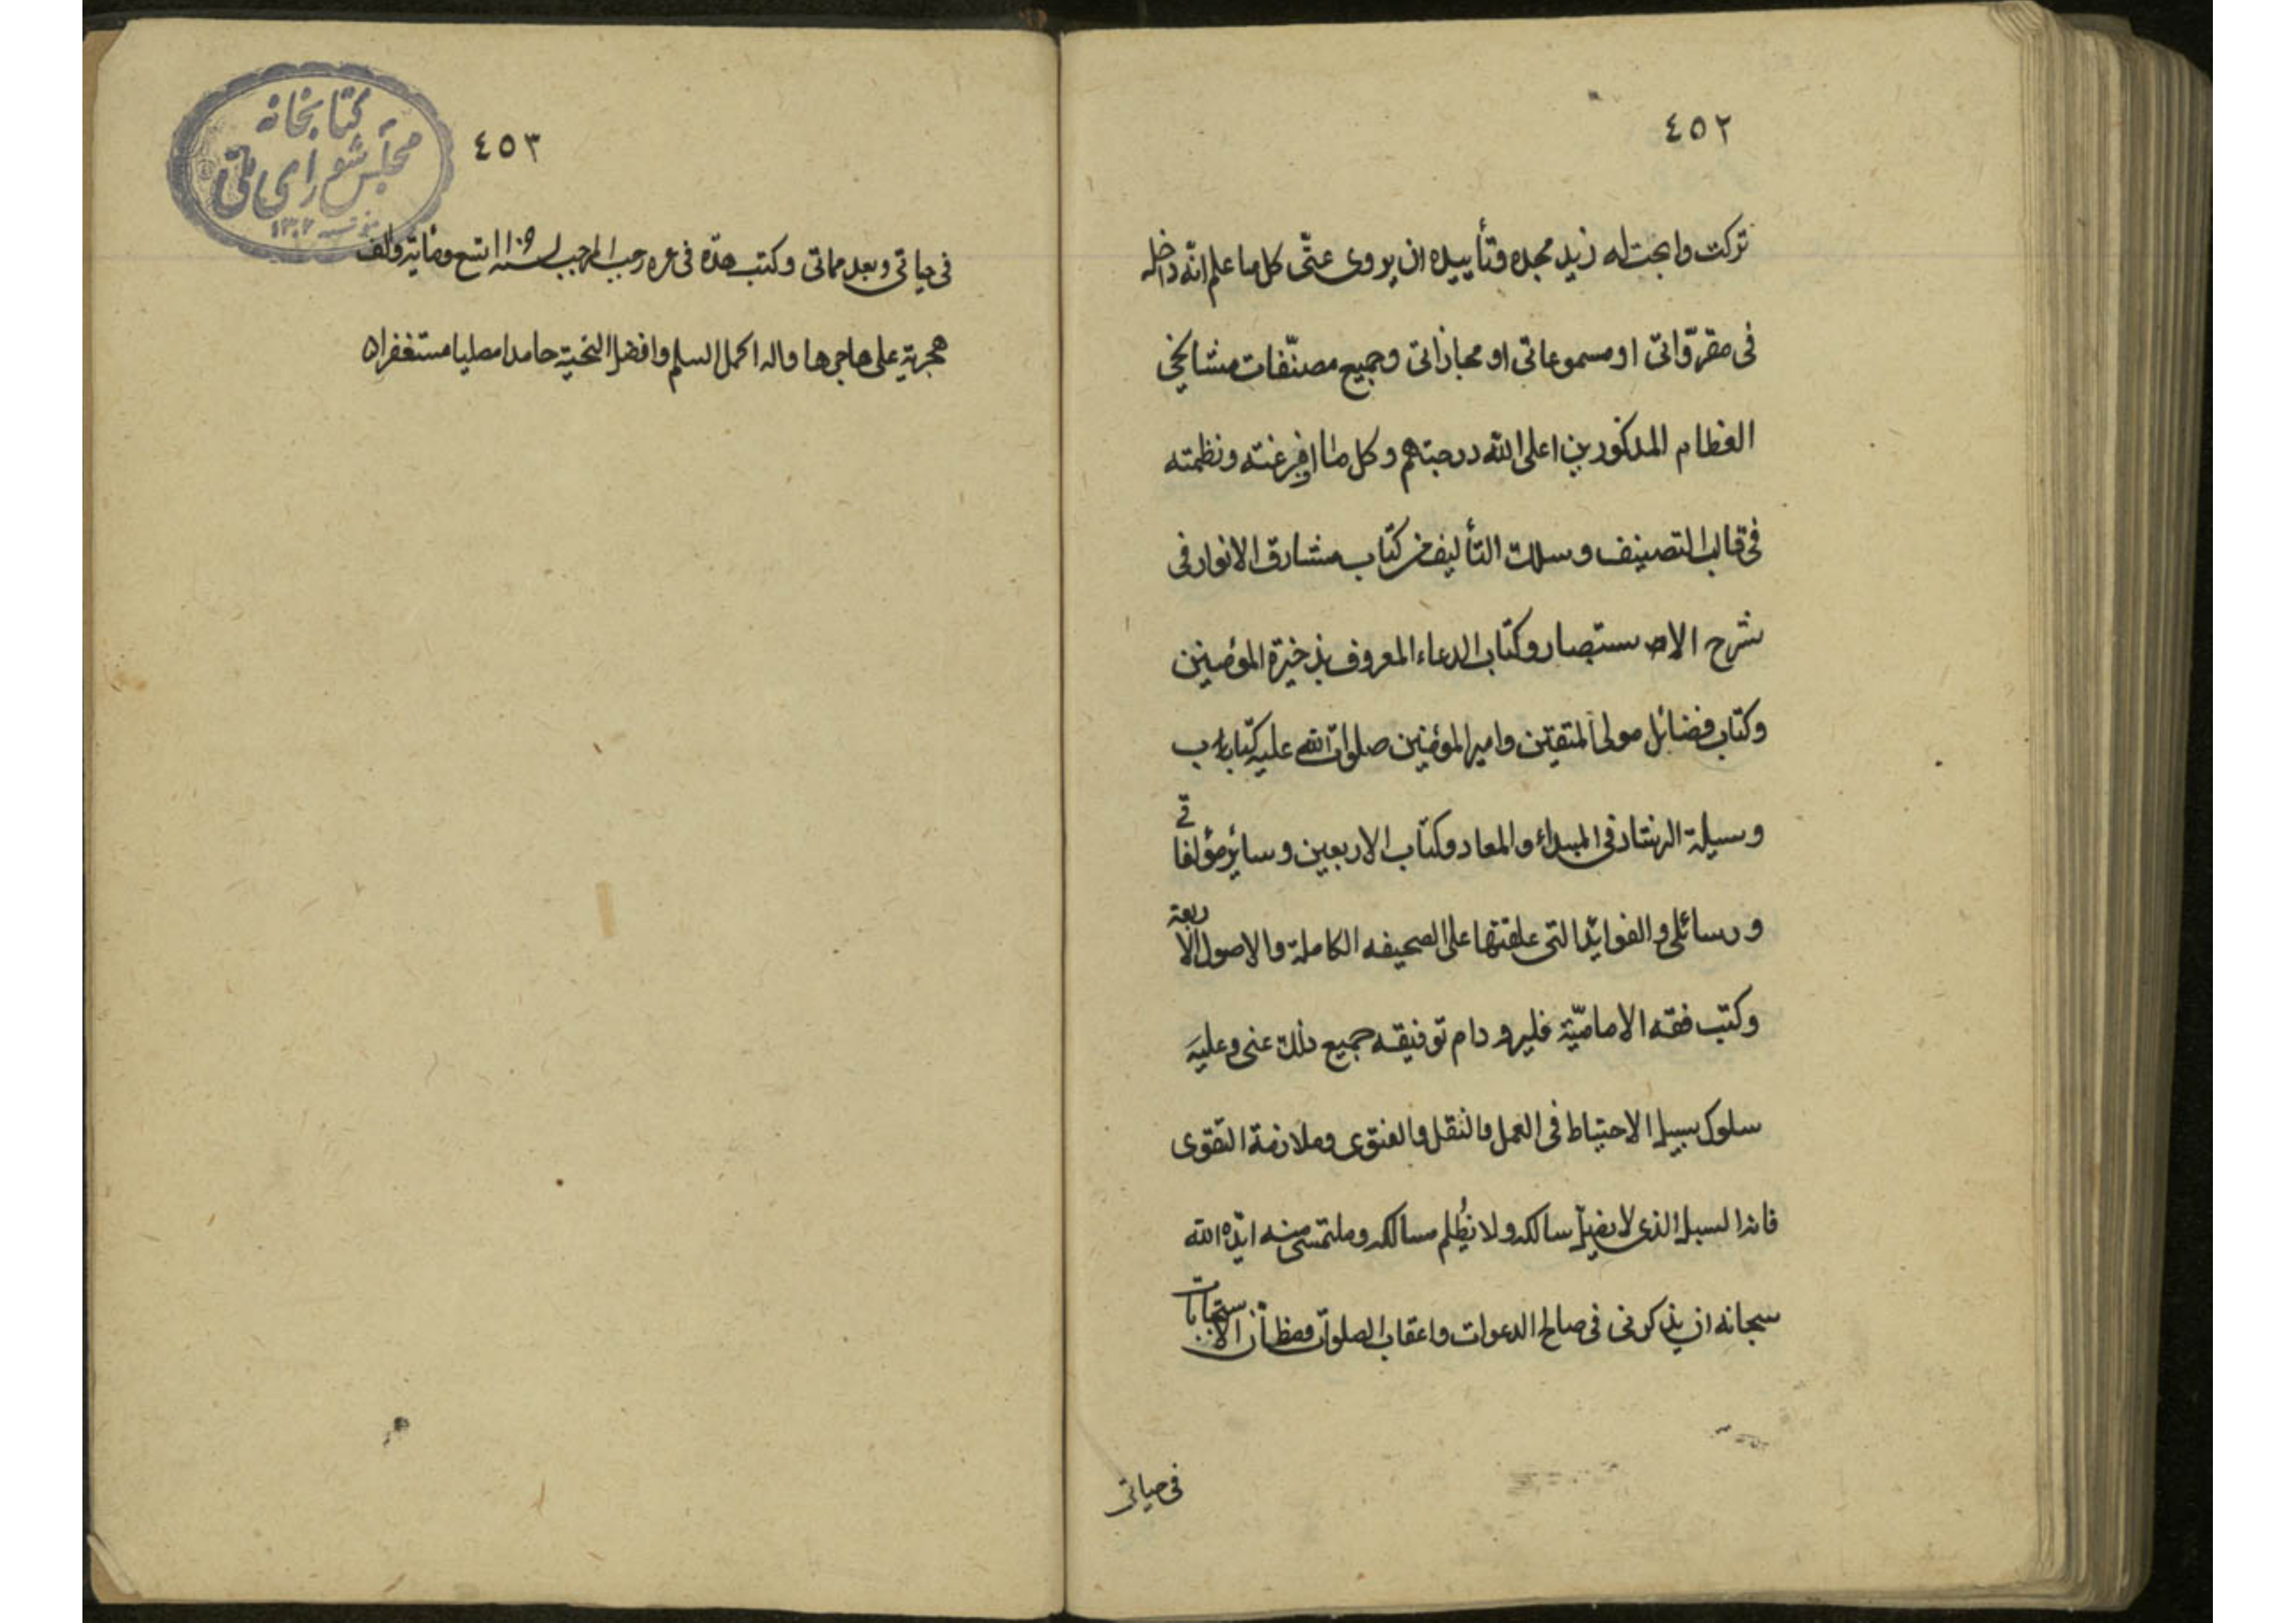 ٤٥٢
تركت وابحت له زيد مجده وتأييده ان يروى عنّى كل ما علم انّه داخل
فى مقروّاتى او مسموعاتى او مجازاتى وجميع مصنّفات مشايخى
العظام المذكورين اعلى الله درجتهم وكل ما افرغته ونظمته
فى قالب التصنيف وسلك التأليف من كتاب مشارق الانوار فى
شرح الاستبصار وكتاب الدعاء المعروف بذخيرة المؤمنين
وكتاب فضائل مولى المتقين وامير المؤمنين صلوات الله عليه كتاب
وسيلة الرشاد فى المبداء والمعاد وكتاب الاربعين وسائر مؤلفاتى
ورسائلى والفوايد التى علقتها على الصحيفه الكاملة والاصول الاربعة
وكتب فقه الاماميّة فليرو دام توفيقه جميع ذلك عنى وعليه
سلوك سبيل الاحتياط فى العمل والنقل والفتوى وملازمة التقوى
فانها السبيل الذى لا يضلّ سالكه ولا يُظلم مسالكه وملتمسى منه ايّده الله
سبحانه ان يذكرنى فى صالح الدعوات واعقاب الصلوات ومظانّ الاستجابات
فى حياتى
٤٥٣
كتابخانه
مجلس شوراى ملّى
١٣٠٢
فى حياتى وبعد مماتى وكتب هذه فى غره رجب المرجب لسنه ١١٠٩ تسع ومائة والف
هجرية على هاجرها واله اكمل السلم وافضل التحية حامدا مصليا مستغفرا